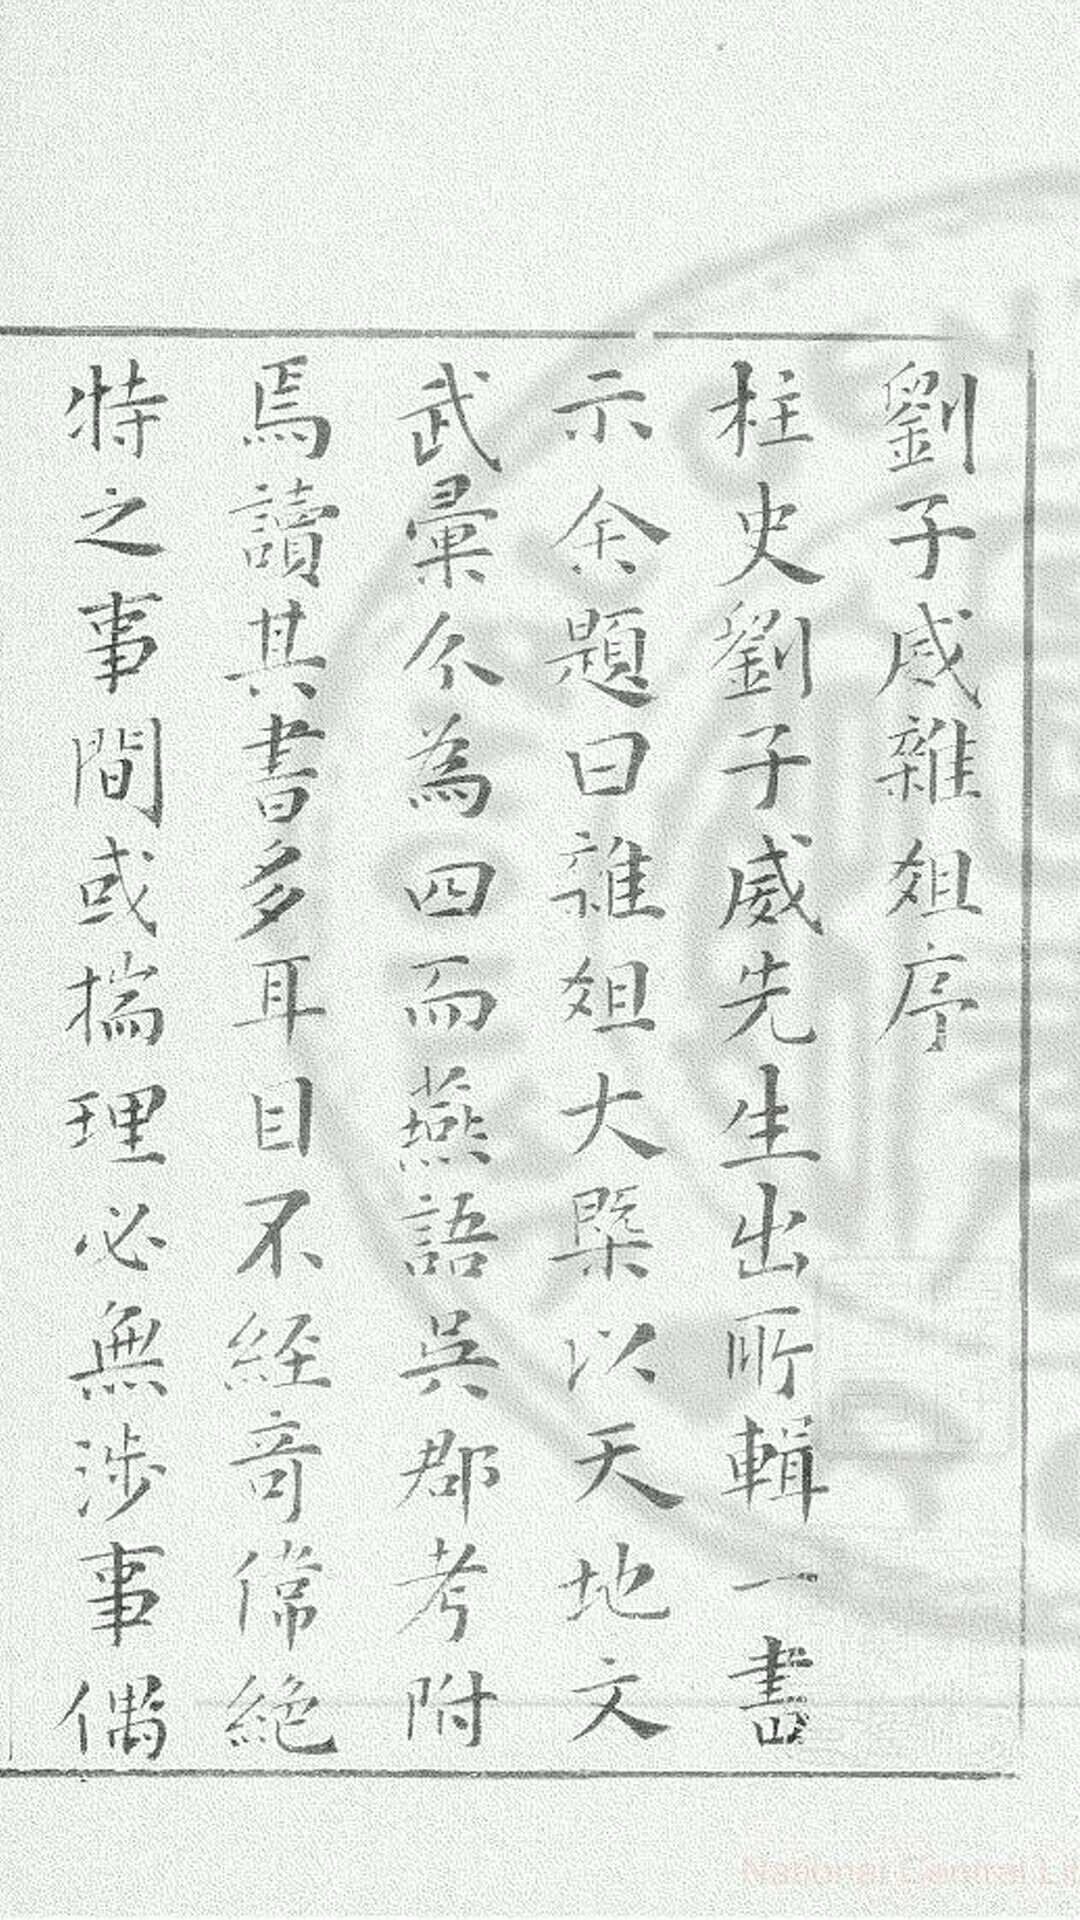 劉子威雜俎序
柱史劉子威先生出所輯一書
示余題曰雜俎大槩以天地文
武彙分為四而燕語吳郡考附
焉讀其書多耳目不經奇偉絕
特之事間或揣理必無涉事偶
National Central Li